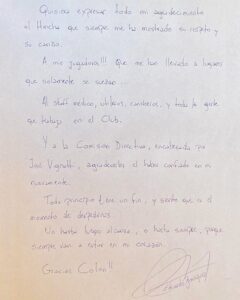 Quisiera expresar todo mi agradecimiento
al Hincha que siempre me ha mostrado su respeto y
su cariño.
A mis jugadores!!! Que me han llevado a lugares
que solamente se sueñan...
Al staff médico, utileros, cancheros, y toda la gente
que trabaja en el Club.
Y a la Comisión Directiva, encabezada por
José Vignatti, agradecerles el haber confiado en mi
nuevamente.
Todo principio tiene un fin, y siento que es el
momento de despedirnos.
Un hasta luego alcanza, o hasta siempre, porque
siempre van a estar en mi corazón.
Gracias Colón!!